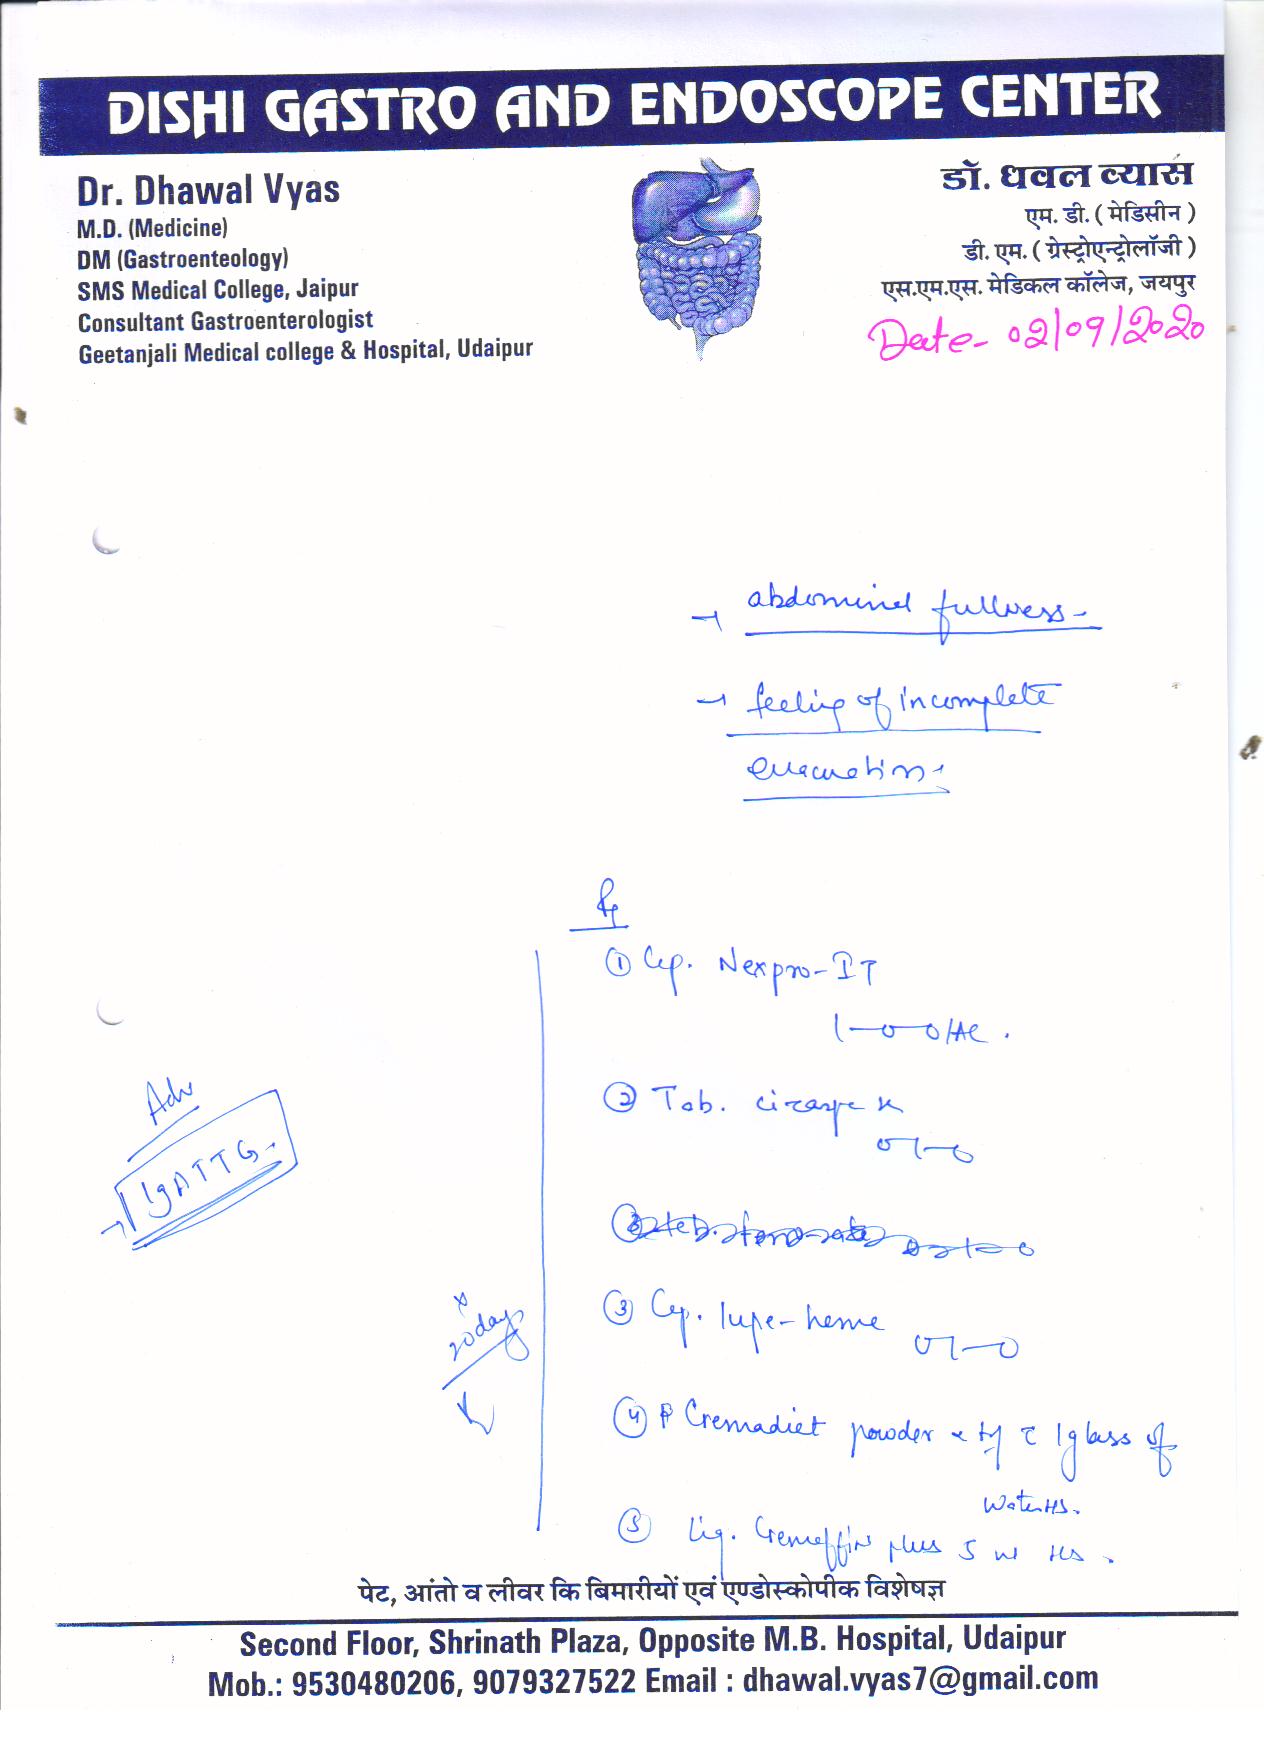 DISHI GASTRO AND ENDOSCOPE CENTER
Dr. Dhawal Vyas
M.D. (Medicine)
DM (Gastroenteology)
SMS Medical College, Jaipur
Consultant Gastroenterologist
Geetanjali Medical college & Hospital, Udaipur
डॉ. धवल व्यास
एम. डी. ( मेडिसीन )
डी. एम. ( ग्रेस्ट्रोएन्ट्रोलॉजी )
एस.एम.एस. मेडिकल कॉलेज, जयपुर
Date- 02/09/2020
→ abdominal fullness-
→ feeling of incomplete
evacuation.
Rx
① Cap. Nexpro-IT
1-0-0/AC.
② Tab.
0-1-0
③ Cap. lupe-heme
0-1-0
④ Cremadiet powder 1 glass of
Water HS.
⑤ Liq. Cremaffin plus 5 ml HS.
Adv
→ IgATTG.
x
20 days
पेट, आंतो व लीवर कि बिमारीयों एवं एण्डोस्कोपीक विशेषज्ञ
Second Floor, Shrinath Plaza, Opposite M.B. Hospital, Udaipur
Mob.: 9530480206, 9079327522 Email : dhawal.vyas7@gmail.com